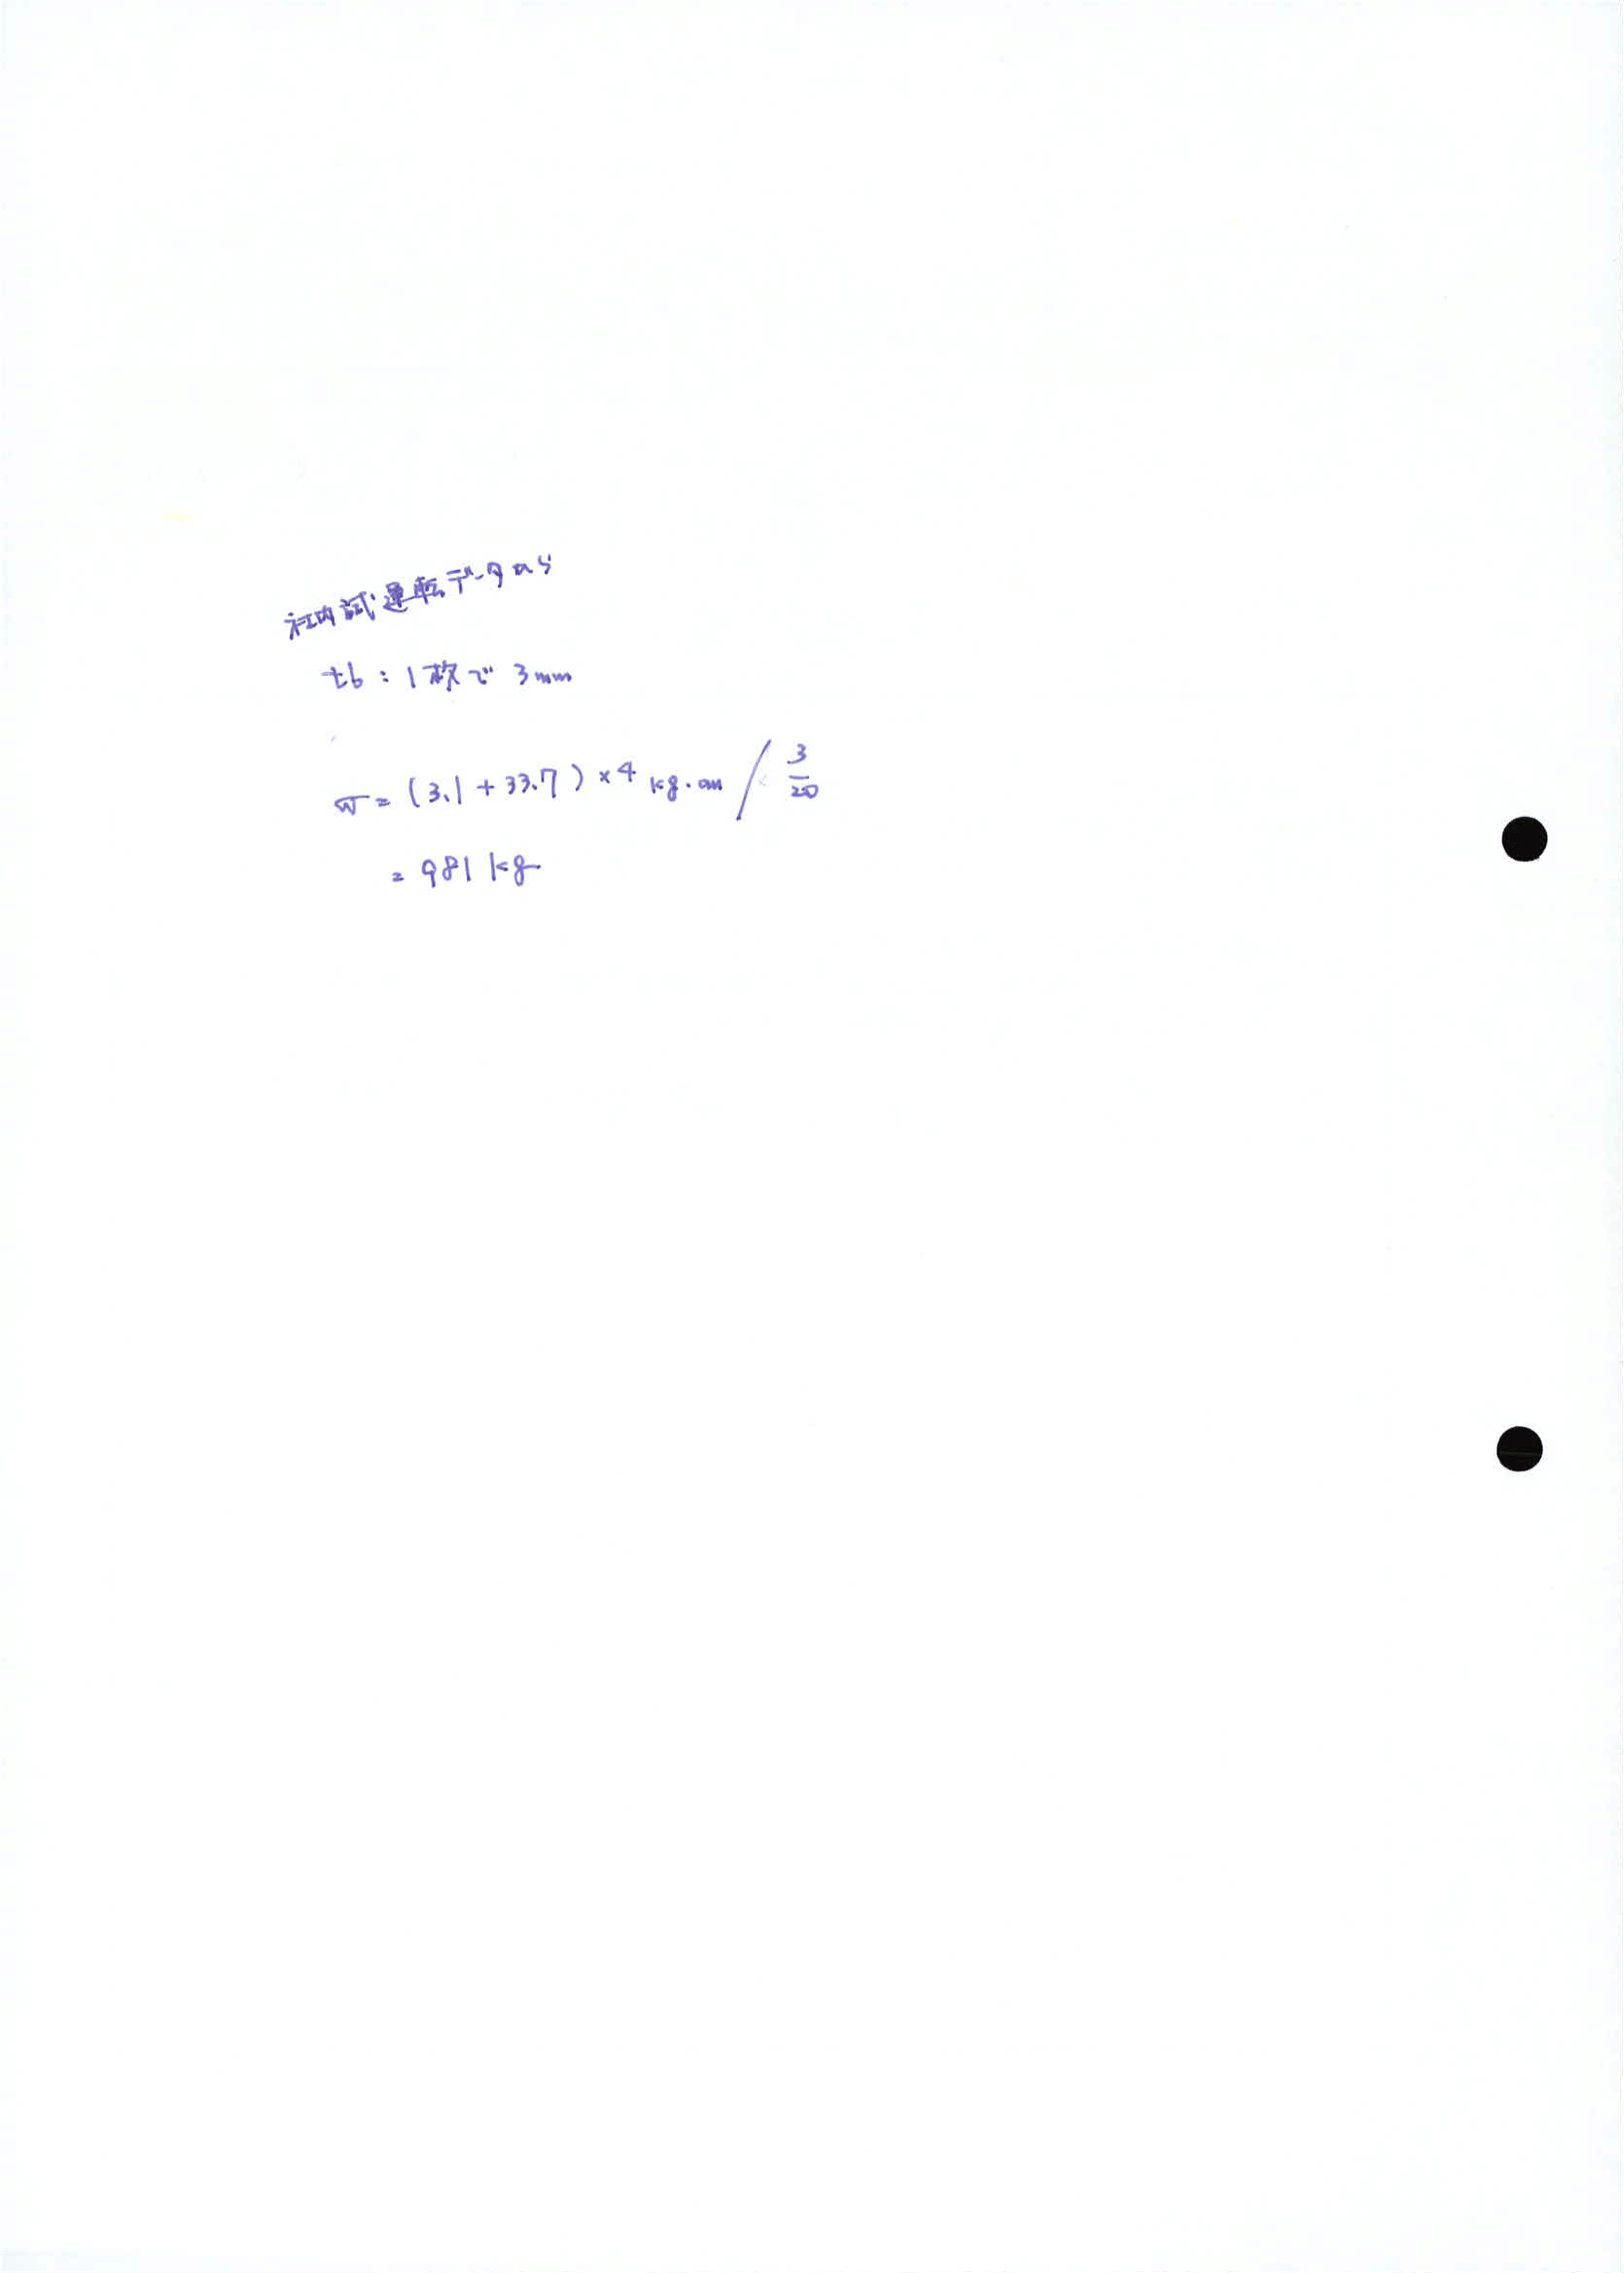 社内試運転データから
t6 : 1枚で 3mm
W = (3.1 + 33.7) × 4 kg・cm / 3/20
= 981 kg